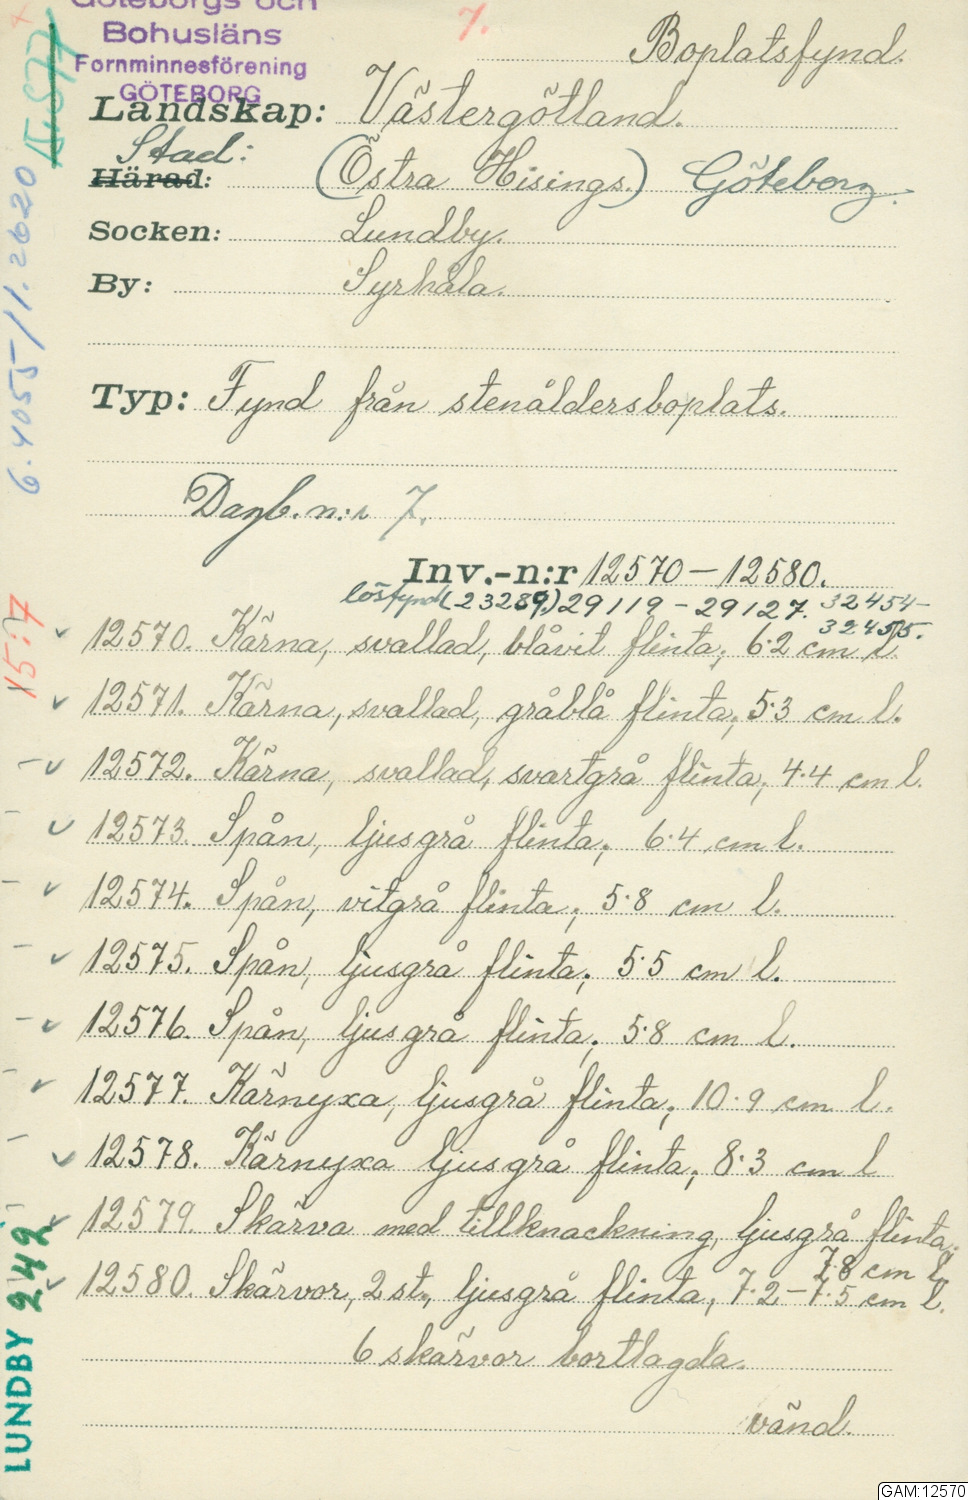 Göteborgs och
Bohusläns
Fornminnesförening
GÖTEBORG
7.
Boplatsfynd.
Landskap: Västergötland.
Stad:
Härad: (Östra Hisings.) Göteborg.
Socken: Lundby.
By: Syrhåla.
Typ: Fynd från stenåldersboplats.
Dagb. n:r 7.
Inv.-n:r 12570–12580.
lösfynd (23289) 29119 – 29127. 32454–
32455.
12570. Kärna, svallad, blåvit flinta; 6.2 cm l.
12571. Kärna, svallad, gråblå flinta; 5.3 cm l.
12572. Kärna, svallad, svartgrå flinta; 4.4 cm l.
12573. Spån, ljusgrå flinta; 6.4 cm l.
12574. Spån, vitgrå flinta; 5.8 cm l.
12575. Spån, ljusgrå flinta; 5.5 cm l.
12576. Spån, ljusgrå flinta; 5.8 cm l.
12577. Kärnyxa, ljusgrå flinta; 10.9 cm l.
12578. Kärnyxa ljusgrå flinta; 8.3 cm l
12579. Skärva med tillknackning, ljusgrå flinta;
7.8 cm l.
12580. Skärvor, 2 st., ljusgrå flinta, 7.2–7.5 cm l.
6 skärvor bortlagda.
vänd.
6.4055/1.2620
15:7
LUNDBY 242
GAM:12570